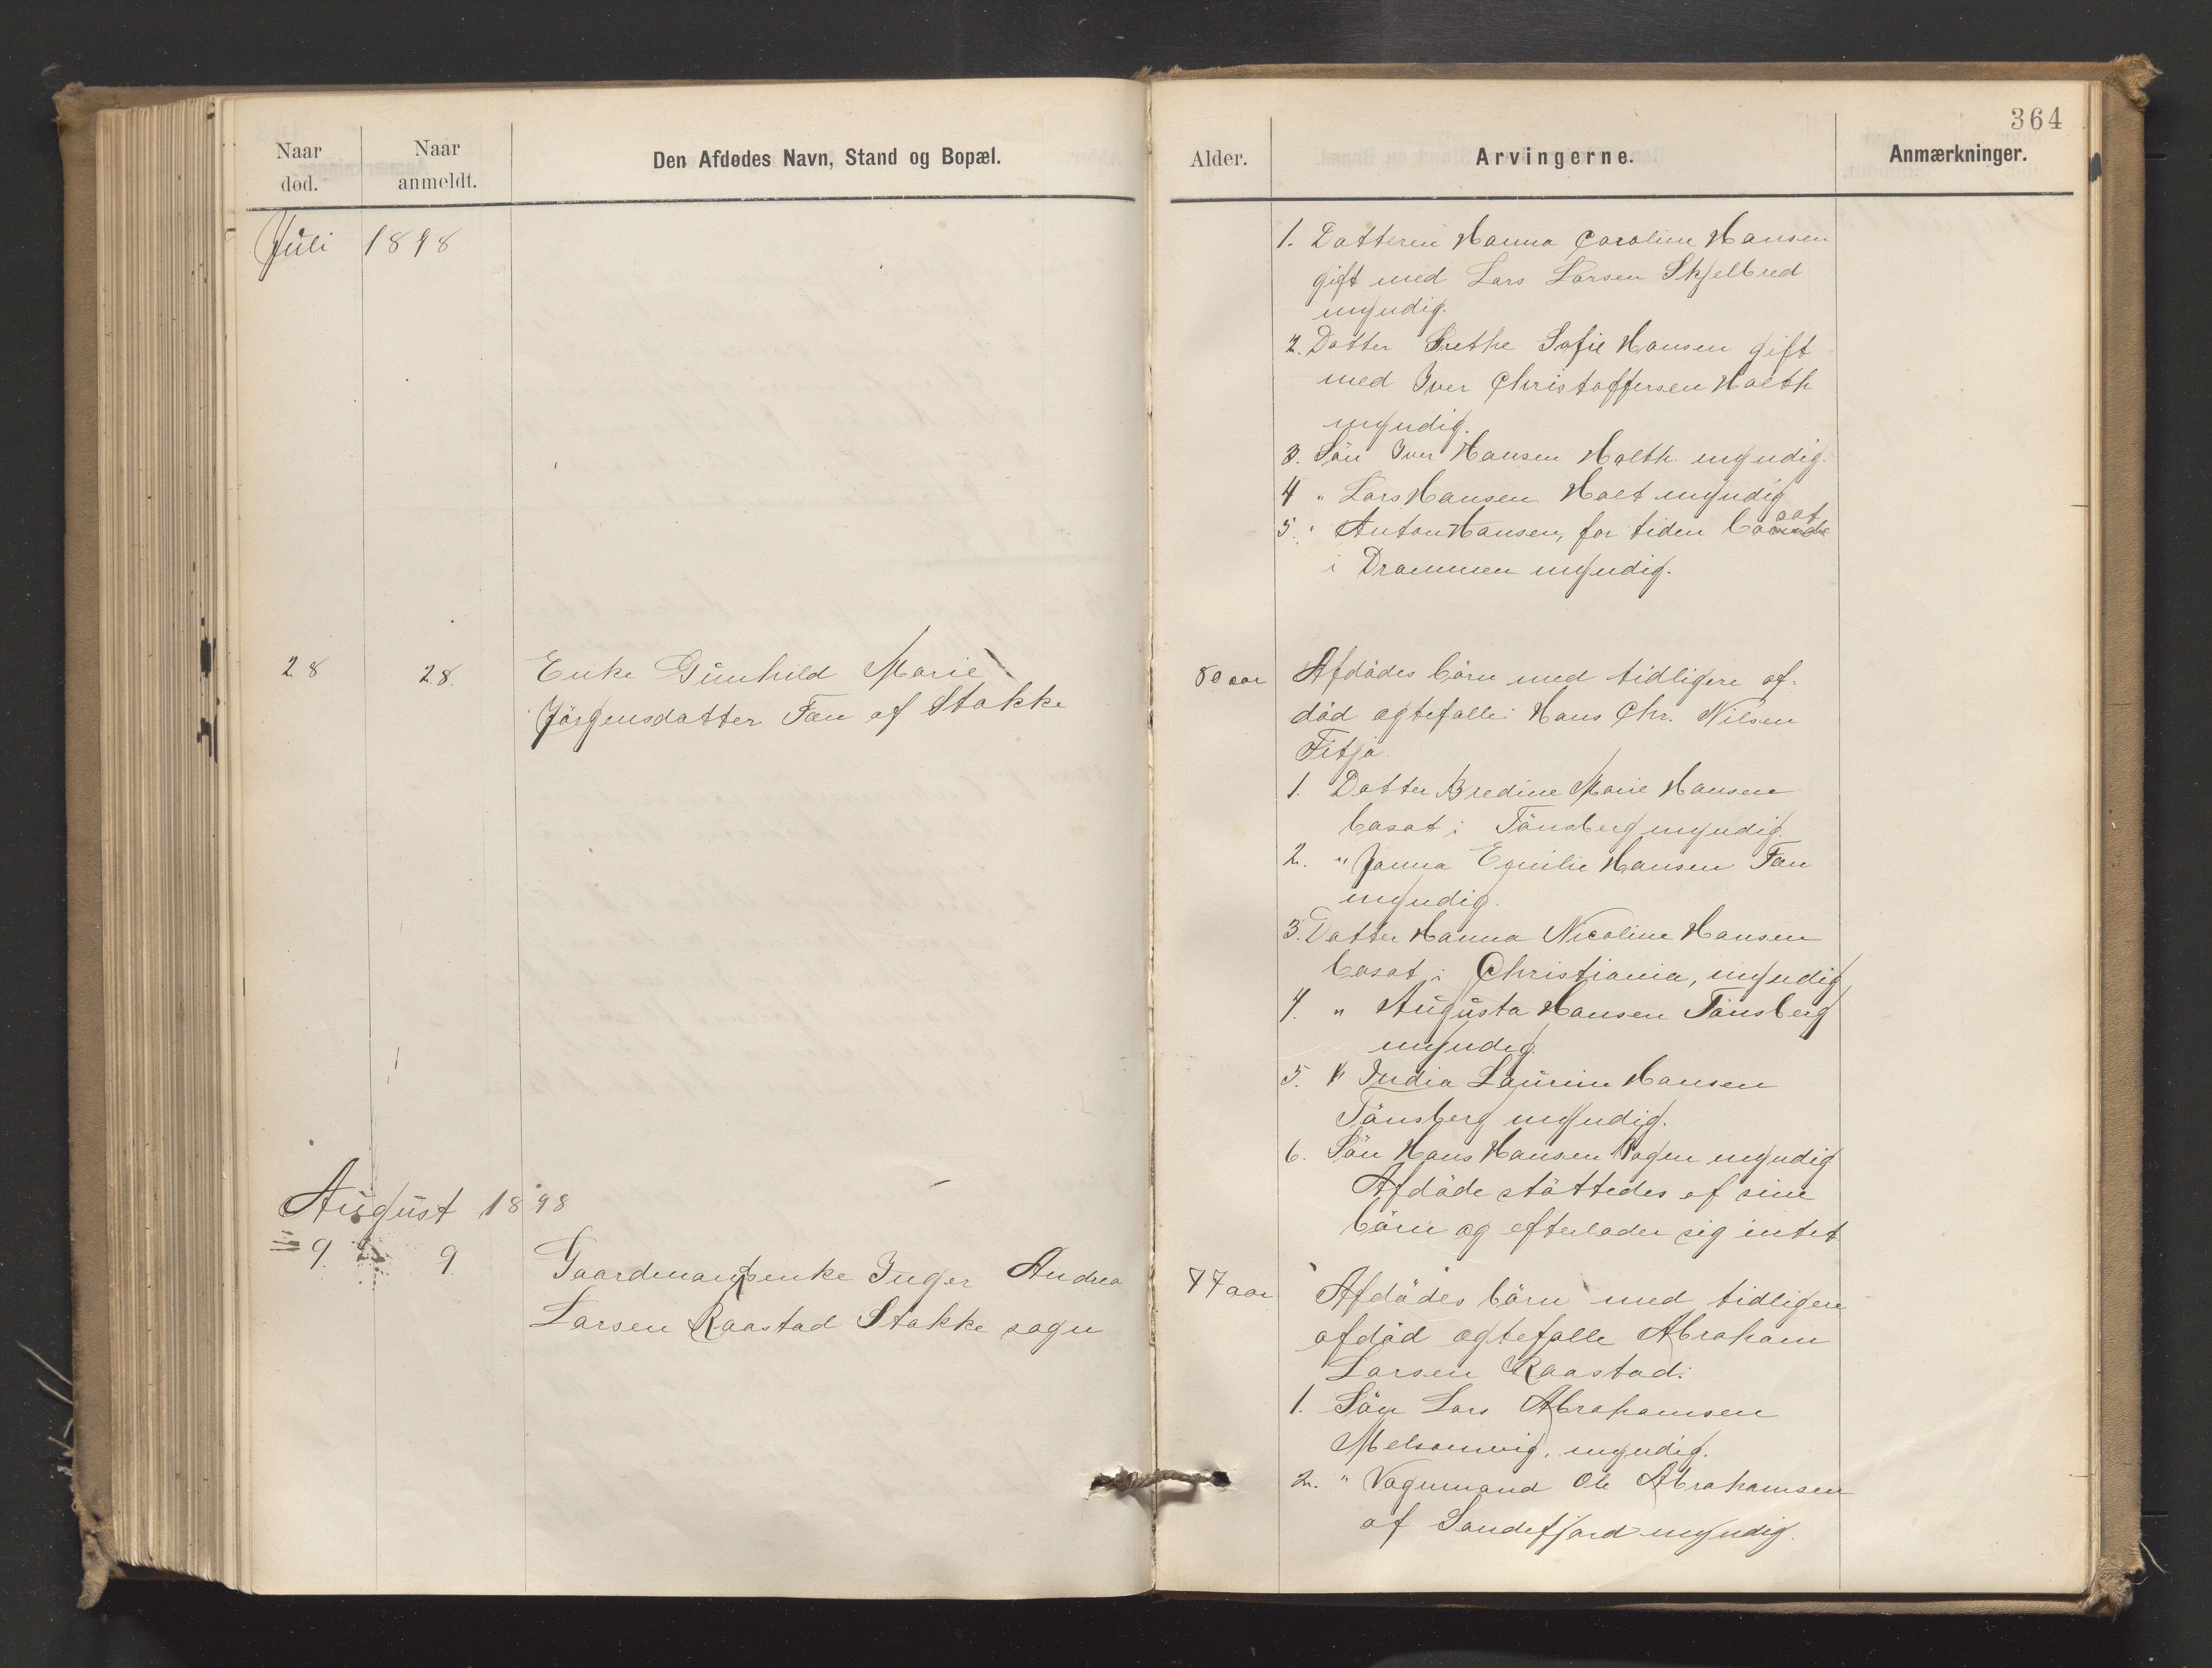 364
Naar død.
Naar anmeldt.
Den Afdødes Navn, Stand og Bopæl.
Alder.
Arvingerne.
Anmærkninger.
Juli 1898
1. Datteren Hanna Caroline Hansen
gift med Lars Larsen Skjelbred
myndig.
2. Datter Grethe Sofie Hansen gift
med Iver Christoffersen Holth
myndig.
3. Sön Iver Hansen Holth myndig.
4 " Lars Hansen Holt myndig
5. " Anton Hansen, for tiden bosat
i Drammen myndig.
28
28.
Enke Gunhild Marie
Jörgensdatter Fæn af Stokke
80 aar
Afdödes börn med tidligere af-
död ægtefælle: Hans Chr. Nilsen
1. Datter Bredine Marie Hansen
bosat i Tönsberg myndig.
2. " Janna Emilie Hansen Fæn
myndig.
3. Datter Hanna Nicoline Hansen
bosat i Christiania, myndig
4. " Augusta Hansen Tönsberg
myndig.
5. " India Laurine Hansen
Tönsberg myndig.
6. Sön Hans Hansen myndig
Afdöde stöttedes af sine
börn og efterlader sig intet
August 1898
9.
9.
Gaardmandsenke Inger Andrea
Larsen Raastad Stokke sogn
77 aar
Afdödes börn med tidligere
afdöd ægtefælle Abraham
Larsen Raastad:
1. Sön Lars Abrahamsen
Melsomvig, myndig.
2. " Vognmand Ole Abrahamsen
af Sandefjord myndig.